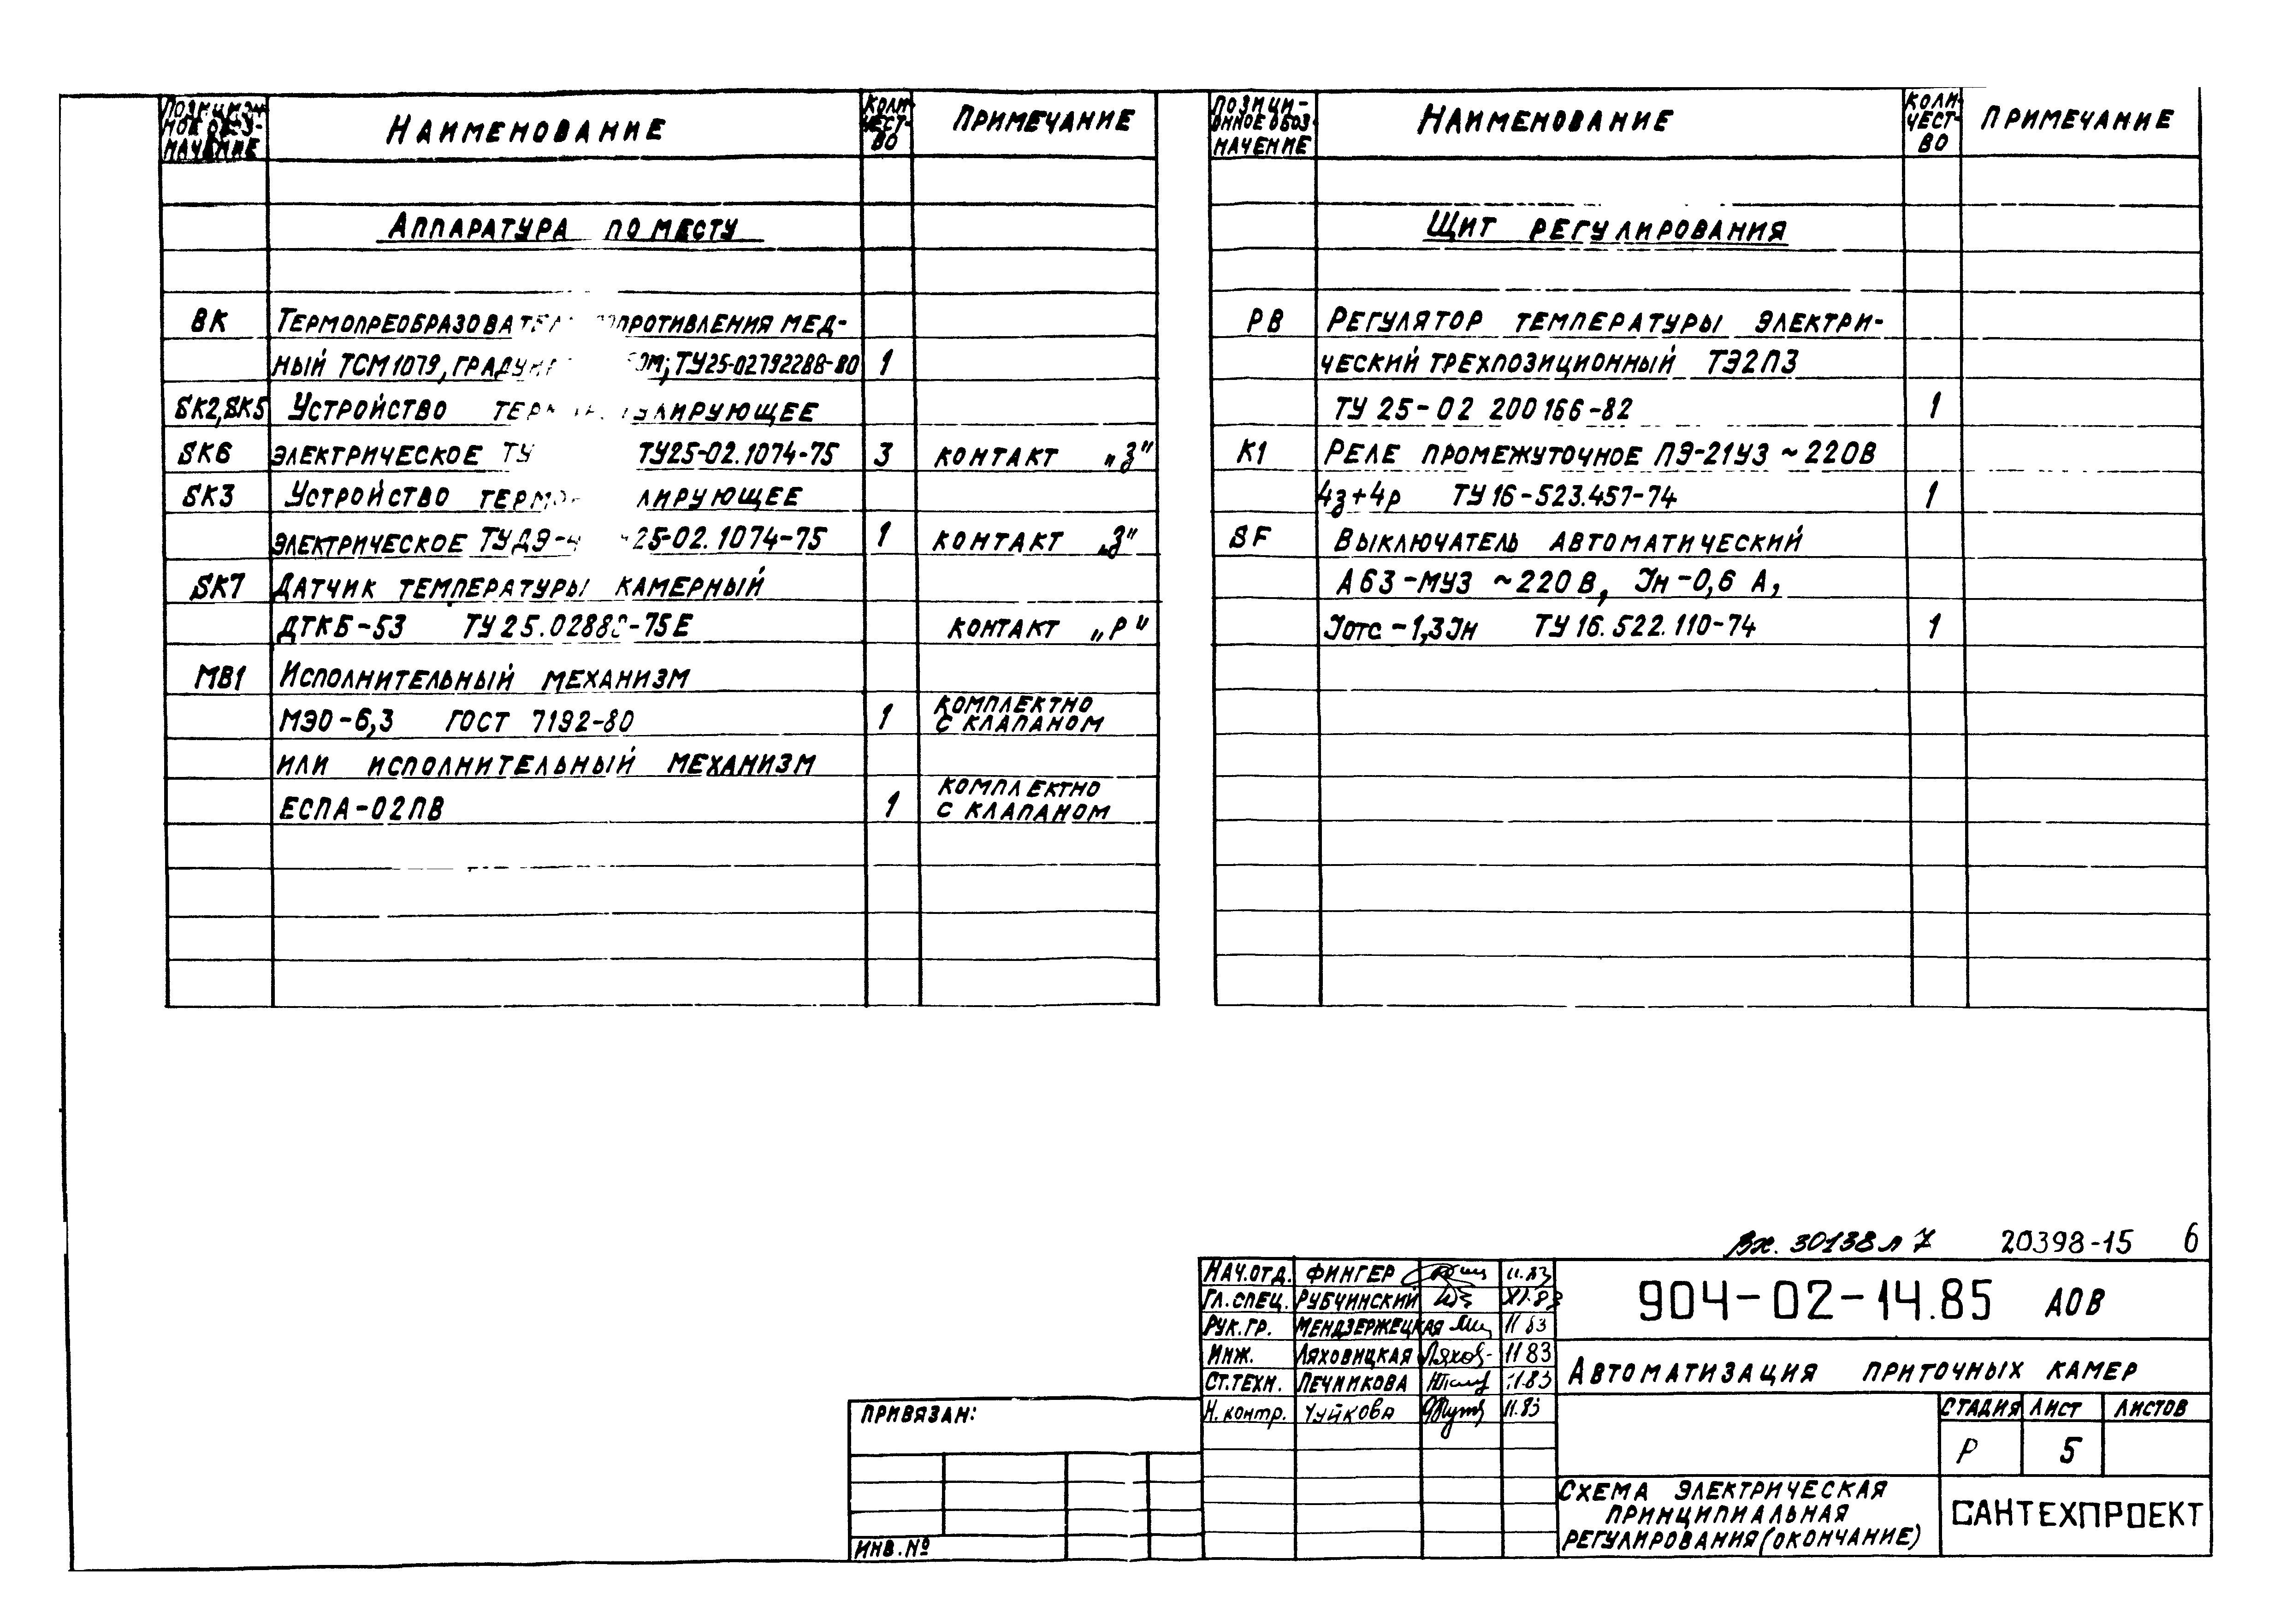 Позицион-
ное обоз-
начение
Наименование
Коли-
чест-
во
Примечание
Аппаратура по месту
ВК Термопреобразовател сопротивления мед-
ный ТСМ1079, ТУ25-02792288-80 1
SK2,SK5 Устройство
SK6 электрическое ТУ25-02.1074-75 3 контакт „З"
SK3 Устройство
электрическое 25-02.1074-75 1 контакт „З"
SK7 Датчик температуры камерный
ДТКБ-53 контакт „Р"
МВ1 Исполнительный механизм
МЭО-6,3 ГОСТ 7192-80 1 комплектно
с клапаном
или исполнительный механизм
ЕСПА-02ПВ 1 комплектно
с клапаном
Позици-
онное обоз-
начение
Наименование
Коли-
чест-
во
Примечание
Щит регулирования
РВ Регулятор температуры электри-
ческий трехпозиционный ТЭ2П3
ТУ 25-02 200166-82 1
К1 Реле промежуточное ПЭ-21У3 ~220В
4з+4р ТУ16-523.457-74 1
SF Выключатель автоматический
А63-МУ3 ~220В, Iн-0,6 А,
Iотс-1,3Iн ТУ16.522.110-74 1
Вх. 30138 л 7 20398-15 6
Нач.отд. Фингер 11.83
Гл.спец. Рубчинский XI.83
Рук.гр. Мендзержецкая 11 83
Инж. Ляховицкая 11 83
Ст.техн. Печникова 11.83
Н.контр. Чуйкова 11.83
904-02-14.85 АОВ
Автоматизация приточных камер
Стадия Лист Листов
Р 5
Схема электрическая
принципиальная
регулирования (окончание)
САНТЕХПРОЕКТ
Привязан:
Инв.№